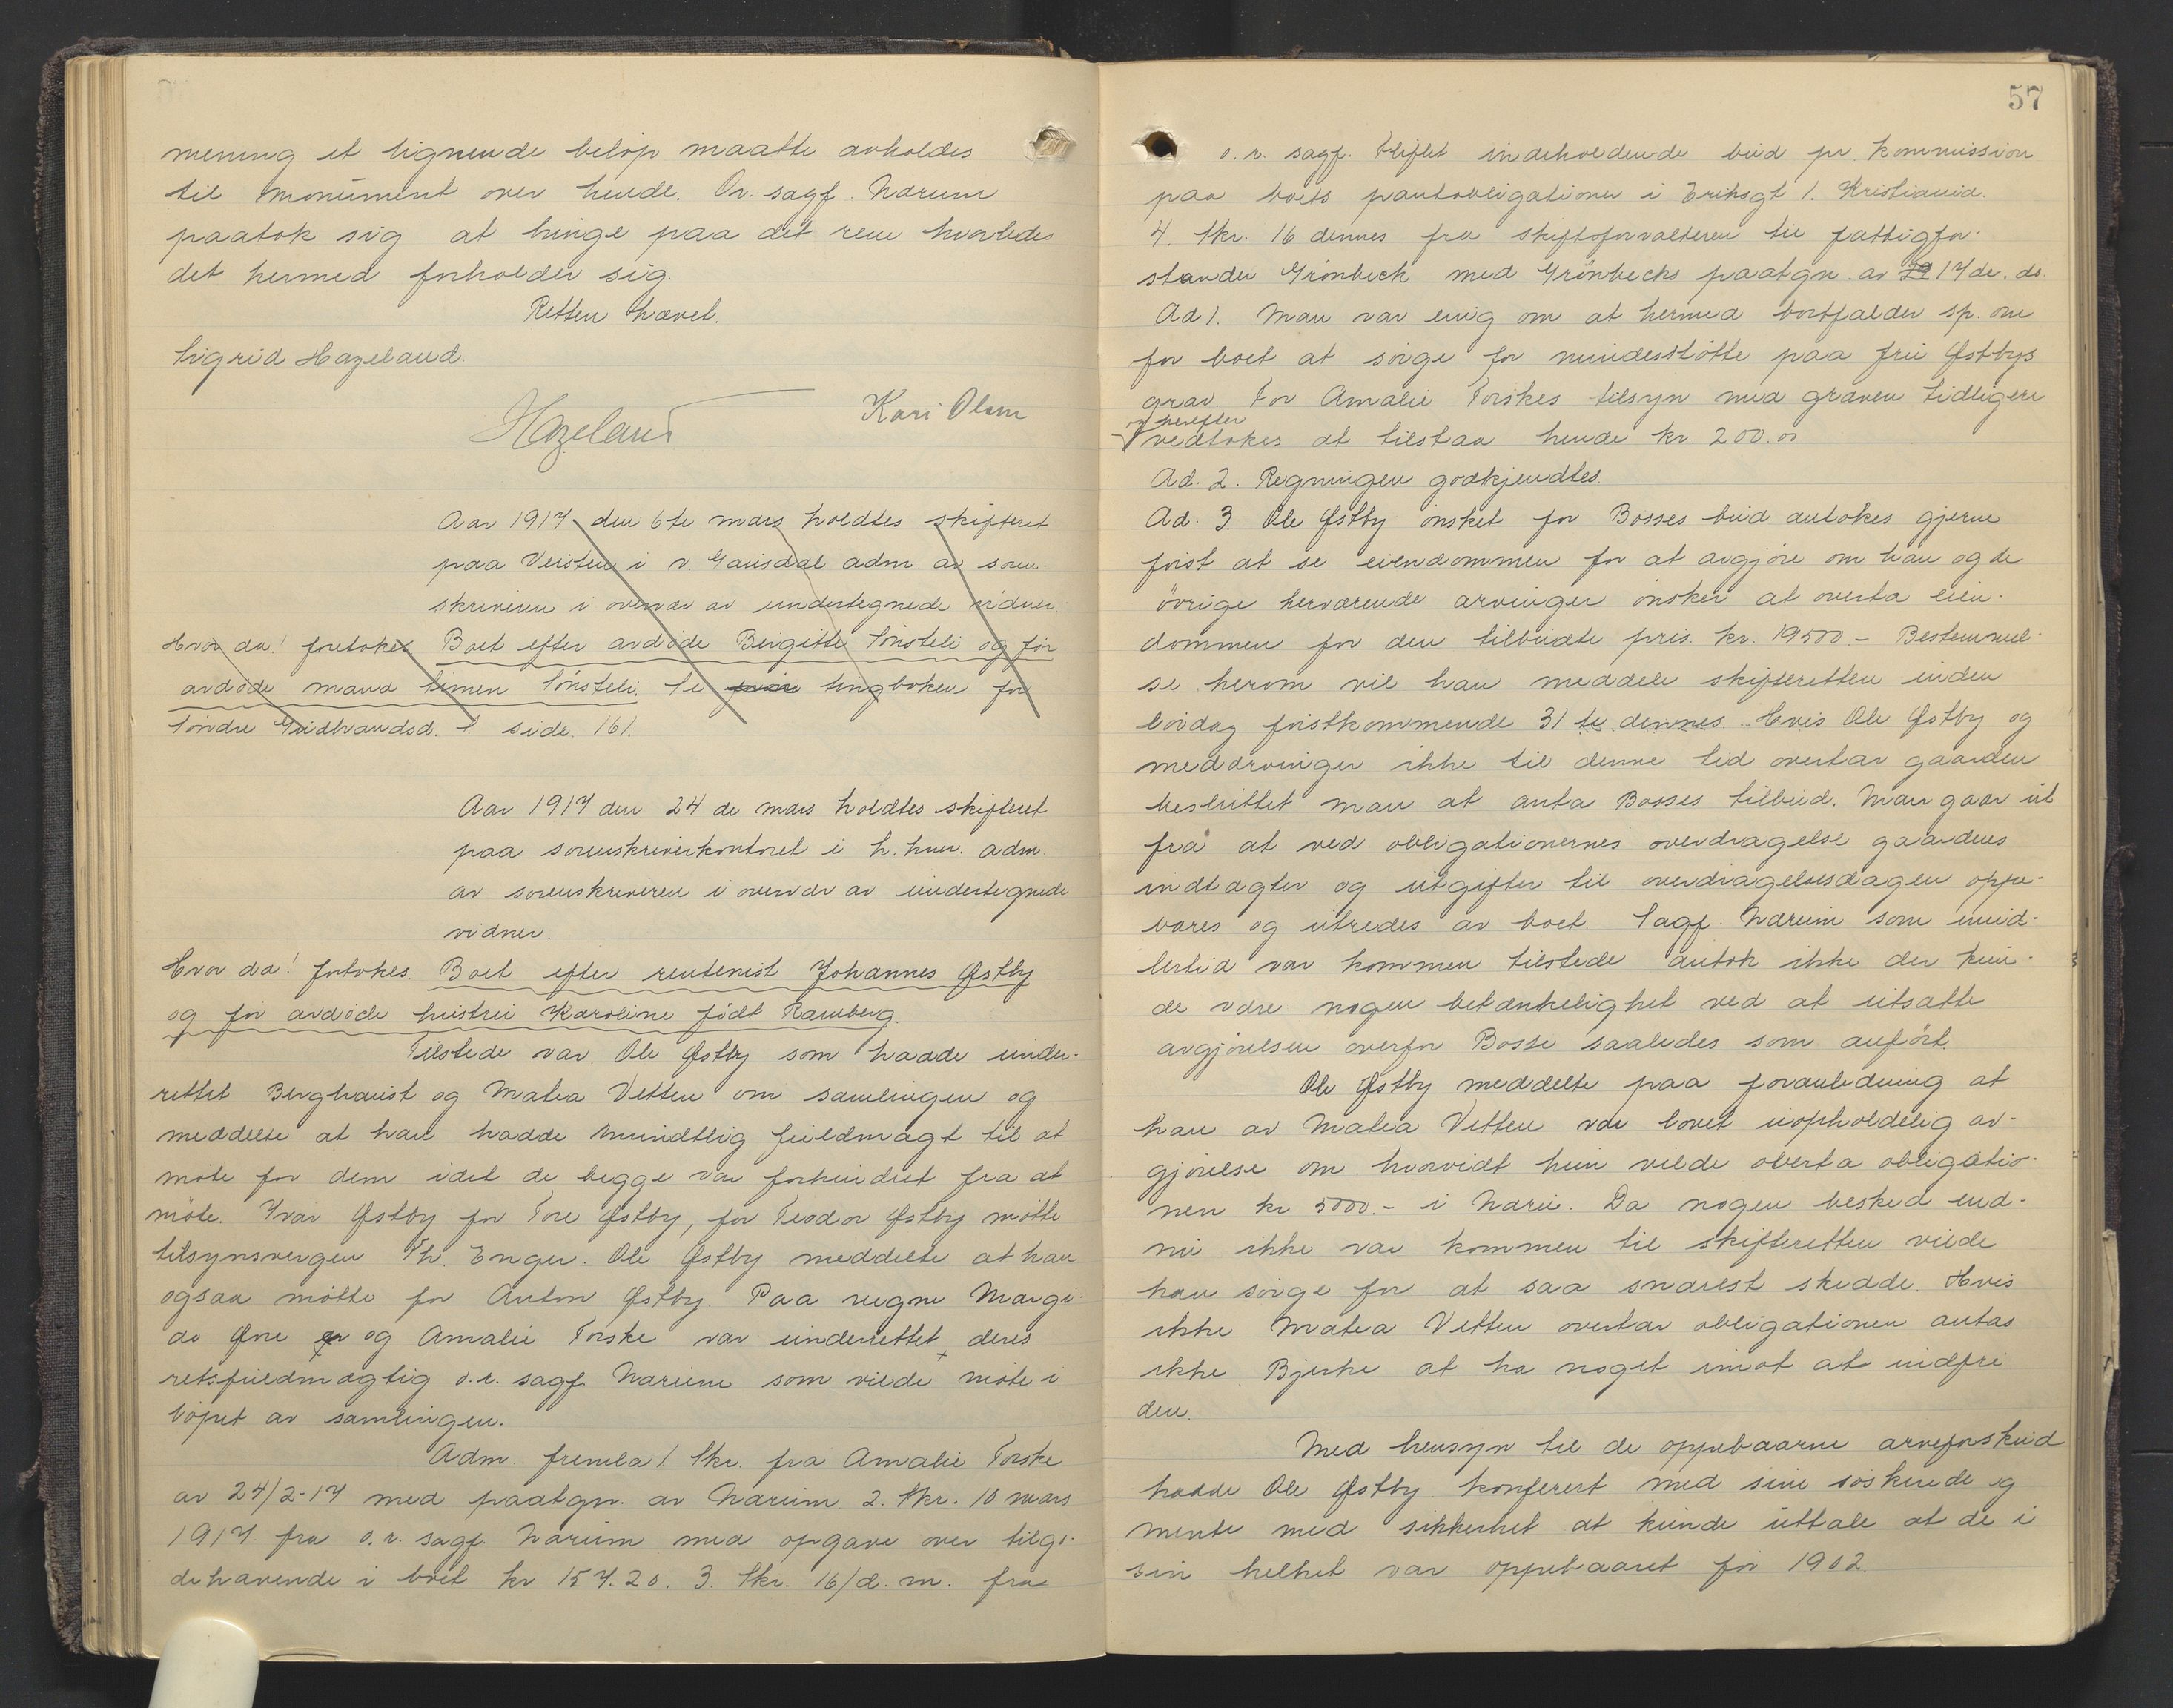 mening et lignende beløp maatte avholdes
til monument over hende. Or. sagf. Narum
paatok sig at bringe paa det rene hvorledes
det hermed forholder sig.
Retten hævet.
Sigrid Hazeland.
Hazeland
Kari Olsen
Aar 1917 den 6te mars holdtes skifteret
paa Veisten i v. Gausdal adm. av soren-
skriveren i overvær av undertegnede vidner.
Hvor da! foretokes Boet efter avdøde Bergitte Sønsteli og før
avdøde mand Simen Sønsteli. Se tingboken for
Søndre Gudbrandsd. side 161.
Aar 1917 den 24 de mars holdtes skifteret
paa sorenskriverkontoret i L.hmr. adm.
av sorenskriveren i overvær av undertegnede
vidner.
Hvor da! foretokes. Boet efter rentenist Johannes Østby
og før avdøde hustru Karoline født Ramberg.
Tilstede var Ole Østby som hadde under-
rettet Bergkvist og Matea Vetten om samlingen og
meddelte at han hadde mundtlig fuldmagt til at
møte for dem idet de begge var forhindret fra at
møte. Ivar Østby for Tore Østby, for Teodor Østby møtte
tilsynsvergen Th. Enger. Ole Østby meddelte at han
ogsaa møtte for Anton Østby. Paa vegne Margi-
do Øne og Amalie Torske var underrettet deres
retsfuldmægtig o.r. sagf. Narum som vilde møte i
løpet av samlingen.
Adm. fremla 1. Skr. fra Amalie Torske
av 24/2-17 med paategn. av Narum 2. Skr. 10 mars
1917 fra o.r. sagf. Narum med opgave over tilgo-
dehavende i boet kr 157.20. 3. Skr. 16/d.m. fra
57
o.r. sagf. indeholdende bud pr kommission
paa boets pantobligationer i Eriksgt 1. Kristiania.
4. Skr. 16 dennes fra skifteforvalteren til fattigfor-
stander Grönbeck med Grönbecks paategn. av 17de. ds.
Ad 1. Man var enig om at hermed bortfalder sp. om
for boet at sørge for mindestøtte paa fru Østbys
grav. For Amalie Torskes tilsyn med graven tidligere
og herefter
vedtokes at tilstaa hende kr. 200.00
Ad. 2. Regningen godkjendtes.
Ad. 3. Ole Østby ønsket før Bosses bud antokes gjerne
først at se eiendommen for at avgjøre om han og de
øvrige herværende arvinger ønsker at overta eien-
dommen for den tilbudte pris kr. 19500.- Bestemmel-
se herom vil han meddele skifteretten inden
lørdag førstkommende 31 te dennes. Hvis Ole Østby og
medarvinger ikke til denne tid overtar gaarden
besluttet man at anta Bosses tilbud. Man gaar ut
fra at ved obligationernes overdragelse gaardens
indtægter og utgifter til overdragelsesdagen oppe-
bæres og utredes av boet. Sagf. Narum som imid-
lertid var kommen tilstede antok ikke der kun-
de være nogen betænkelighet ved at utsatte
avgjørelsen overfor Bosse saaledes som anført.
Ole Østby meddelte paa foranledning at
han av Matea Vetten var lovet uopholdelig av-
gjørelse om hvorvidt hun vilde overta obligatio-
nen kr 5000.- i Narii. Da nogen besked end-
nu ikke var kommen til skifteretten vilde
han sørge for at saa snarest skedde. Hvis
ikke Matea Vetten overtar obligationen antas
ikke Bjerke at ha noget imot at indfri
den.
Med hensyn til de oppebaarne arveforskud
hadde Ole Østby konferert med sine søskende og
mente med sikkerhet at kunde uttale at de i
sin helhet var oppebaaret før 1902.